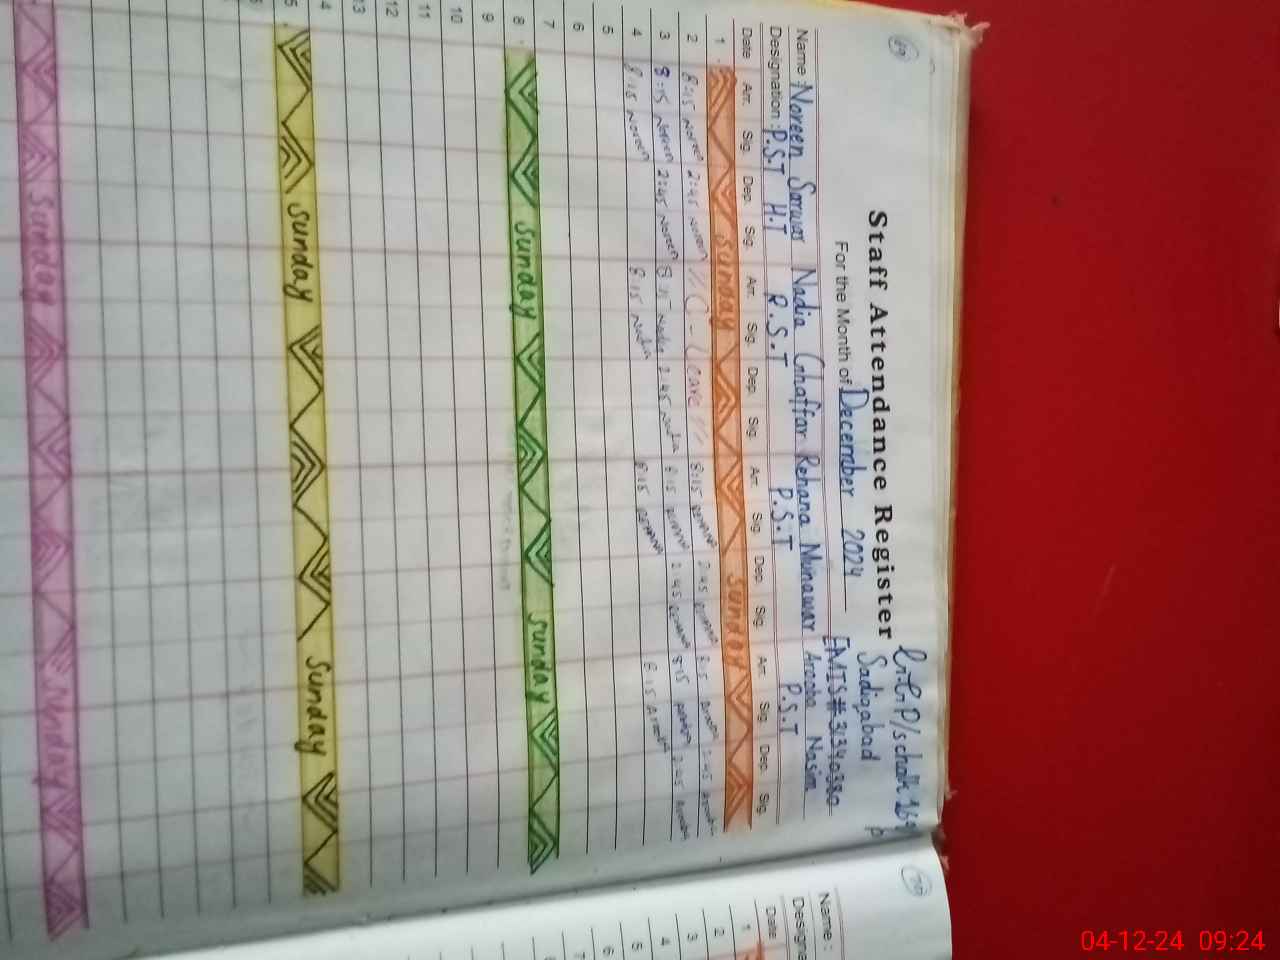 69
Staff Attendance Register
Sadiqabad
For the Month of December 2024
EMIS# 31340380
Name : Noreen Sarwar Nadia Ghaffar Rehana Munawar Arooba Nasim
Designation : P.S.T H.T P.S.T P.S.T P.S.T
Date Arr. Sig. Dep. Sig. Arr. Sig. Dep. Sig. Arr. Sig. Dep. Sig. Arr. Sig. Dep. Sig.
1 Sunday Sunday
2 8:15 Noreen 2:45 Noreen // C-Leave // 8:15 Rehana 2:45 Rehana 8:15 Arooba 2:45 Arooba
3 8:15 Noreen 2:45 Noreen 8:15 Nadia 2:45 Nadia 8:15 Rehana 2:45 Rehana 8:15 2:45 Arooba
4 8:15 Noreen 8:15 Nadia 8:15 Rehana 8:15 Arooba
5
6
7
8 Sunday Sunday
9
10
11
12
13
4
5 Sunday Sunday
Sunday Sunday
70
Name :
Designa
Date
1
2
3
4
5
6
7
04-12-24 09:24